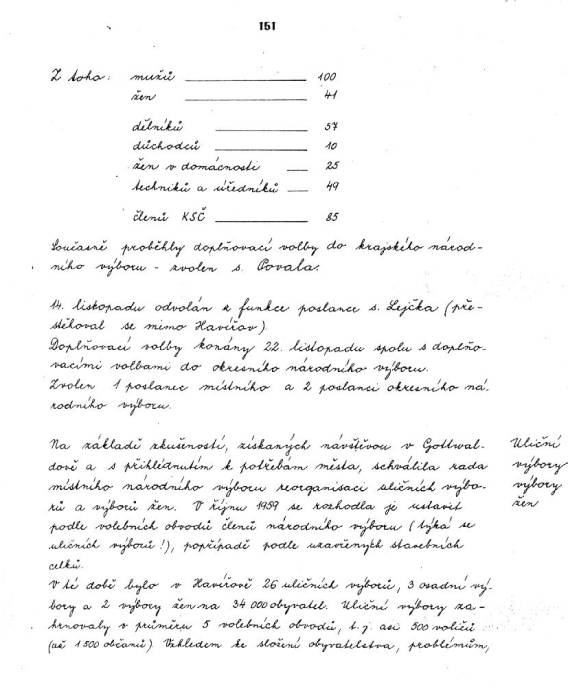 151
Z toho: mužů 100
žen 41
dělníků 57
důchodců 10
žen v domácnosti 25
techniků a úředníků 49
členů KSČ 85
Současně proběhly doplňovací volby do krajského národ-
ního výboru - zvolen s. Povala.
14. listopadu odvolán z funkce poslance s. Lejčka (pře-
stěhoval se mimo Havířov).
Doplňovací volby konány 22. listopadu spolu s doplňo-
vacími volbami do okresního národního výboru.
Zvolen 1 poslanec místního a 2 poslanci okresního ná-
rodního výboru.
Na základě zkušeností, získaných návštěvou v Gottwal-
dově a s přihlédnutím k potřebám města, schválila rada
místního národního výboru reorganisaci uličních výbo-
rů a výborů žen. V říjnu 1959 se rozhodla je ustavit
podle volebních obvodů členů národního výboru (týká se
uličních výborů!), popřípadě podle uzavřených stavebních
celků.
Uliční
výbory
výbory
žen
V té době bylo v Havířově 26 uličních výborů, 3 osadní vý-
bory a 2 výbory žen na 34 000 obyvatel. Uliční výbory za-
hrnovaly v průměru 5 volebních obvodů, t. j. asi 500 voličů
(až 1 500 občanů). Vzhledem ke složení obyvatelstva, problémům,